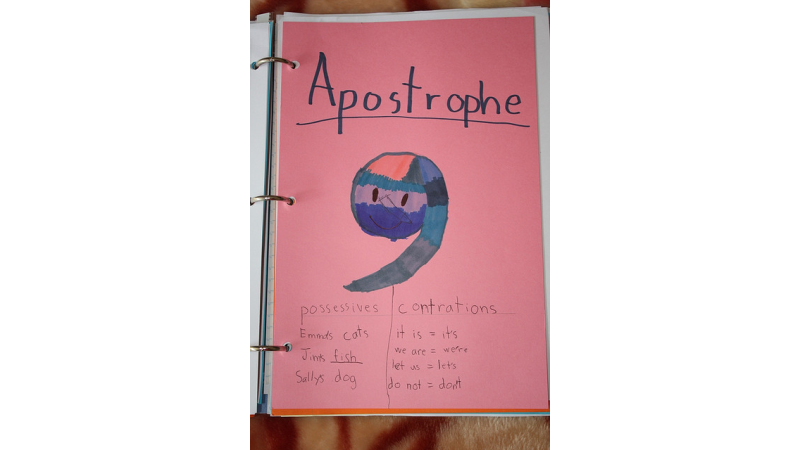 Apostrophe
possessives contrations
Emma's cats it is = it's
Jim's fish we are = we're
Sally's dog let us = let's
do not = don't